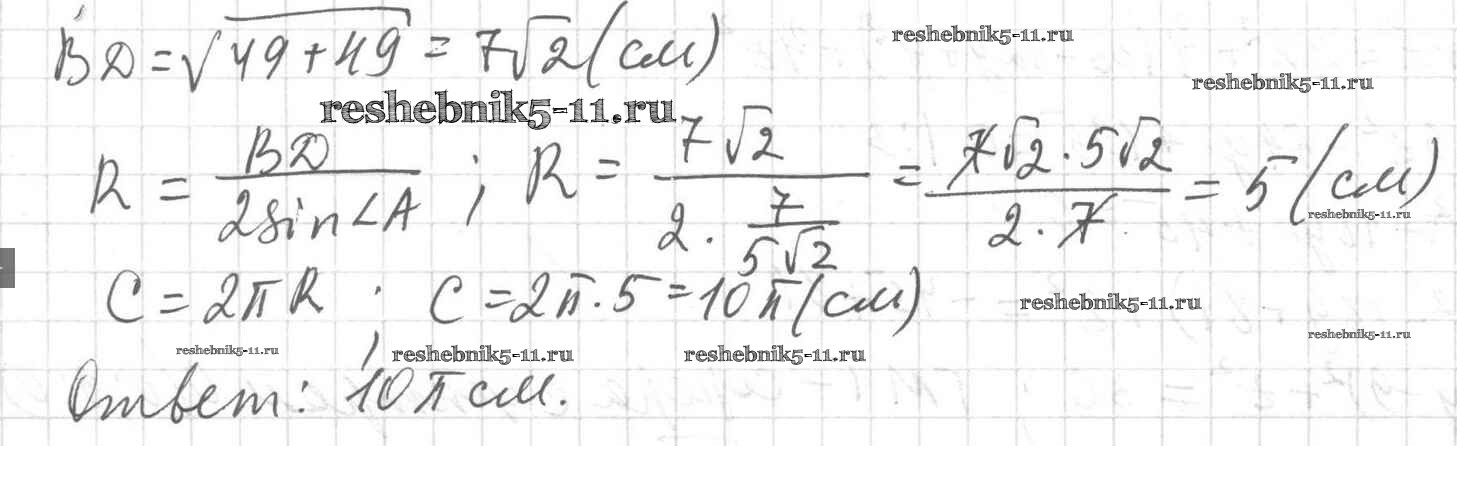 BD = √(49 + 49) = 7√2 (см)
reshebnik5-11.ru
reshebnik5-11.ru
reshebnik5-11.ru
R = BD / (2 sin ∠A) ; R = 7√2 / (2 · 7/(5√2)) = (7√2 · 5√2) / (2 · 7) = 5 (см)
reshebnik5-11.ru
C = 2πR ; C = 2π · 5 = 10π (см)
reshebnik5-11.ru
reshebnik5-11.ru
reshebnik5-11.ru
reshebnik5-11.ru
reshebnik5-11.ru
Ответ: 10π см.